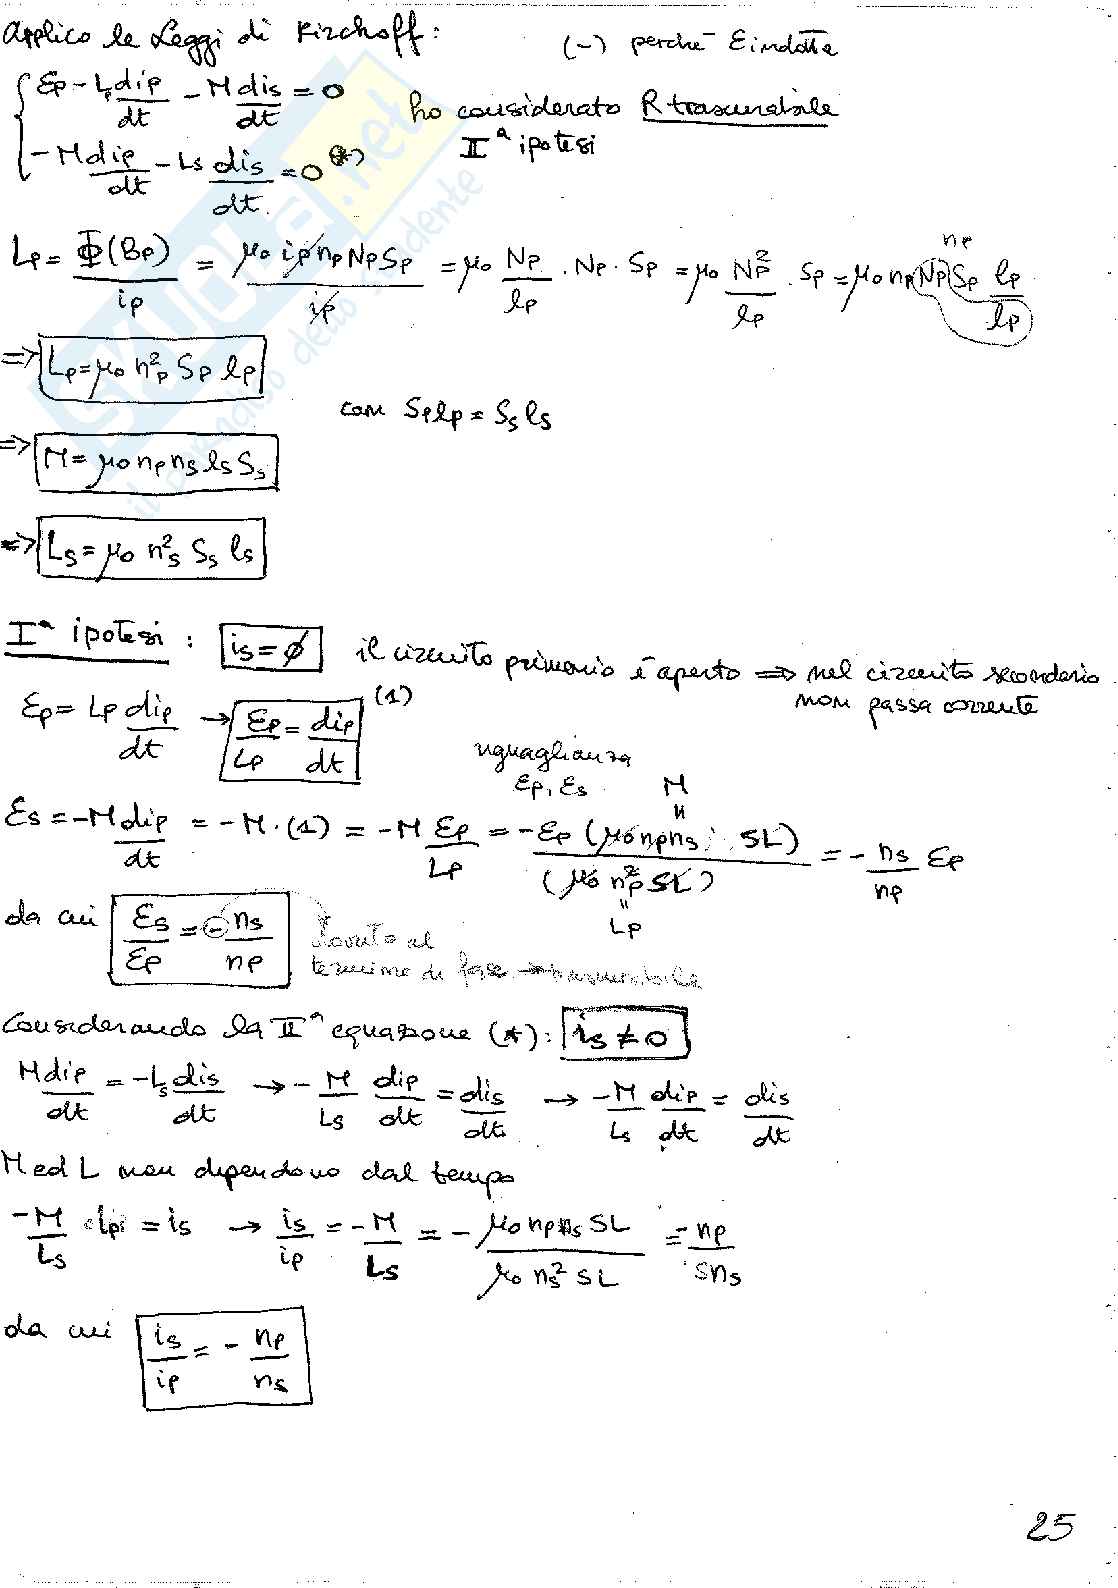 Applico le Leggi di Kirchoff: (-) perchè E indotta
{ Ɛp - Lp dip/dt - M dis/dt = 0 ho considerato R trascurabile
{ - M dip/dt - Ls dis/dt = 0 (*) IIª ipotesi
Lp = Φ(Bp)/ip = μ0 ip np Np Sp / ip = μ0 Np/lp · Np · Sp = μ0 Np²/lp · Sp = μ0 np Np Sp lp/lp
np
=> Lp = μ0 np² Sp lp
con Sp lp = Ss ls
=> M = μ0 np ns ls Ss
=> Ls = μ0 ns² Ss ls
Iª ipotesi : is = ∅ il circuito primario è aperto => nel circuito secondario
non passa corrente
Ɛp = Lp dip/dt → Ɛp/Lp = dip/dt (1)
uguaglianza
Ɛp, Ɛs M
Ɛs = - M dip/dt = - M · (1) = - M Ɛp/Lp = - Ɛp (μ0 np ns SL) / (μ0 np² SL) = - ns/np Ɛp
Lp
da cui Ɛs/Ɛp = - ns/np dovuto al
termine di fase → trascurabile
Considerando la IIª equazione (*): is ≠ 0
M dip/dt = - Ls dis/dt → - M/Ls dip/dt = dis/dt → - M/Ls dip/dt = dis/dt
M ed L non dipendono dal tempo
- M/Ls ip = is → is/ip = - M/Ls = - μ0 np ns SL / μ0 ns² SL = - np/ns
da cui is/ip = - np/ns
25
SKUOLA.net
il paradiso dello studente